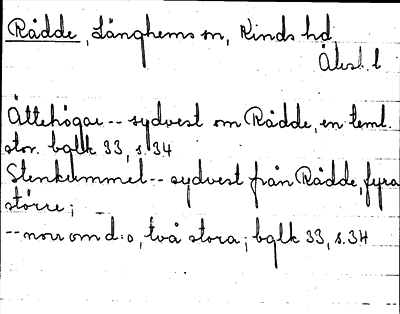 Rådde, Länghems sn, Kinds hd
Älvsb. l
Ättehögar -- sydvest om Rådde, en teml.
stor. bglk 33, s. 34
Stenkummel -- sydvest från Rådde, fyra
större;
-- norr om d:o, två stora; bglk 33, s. 34